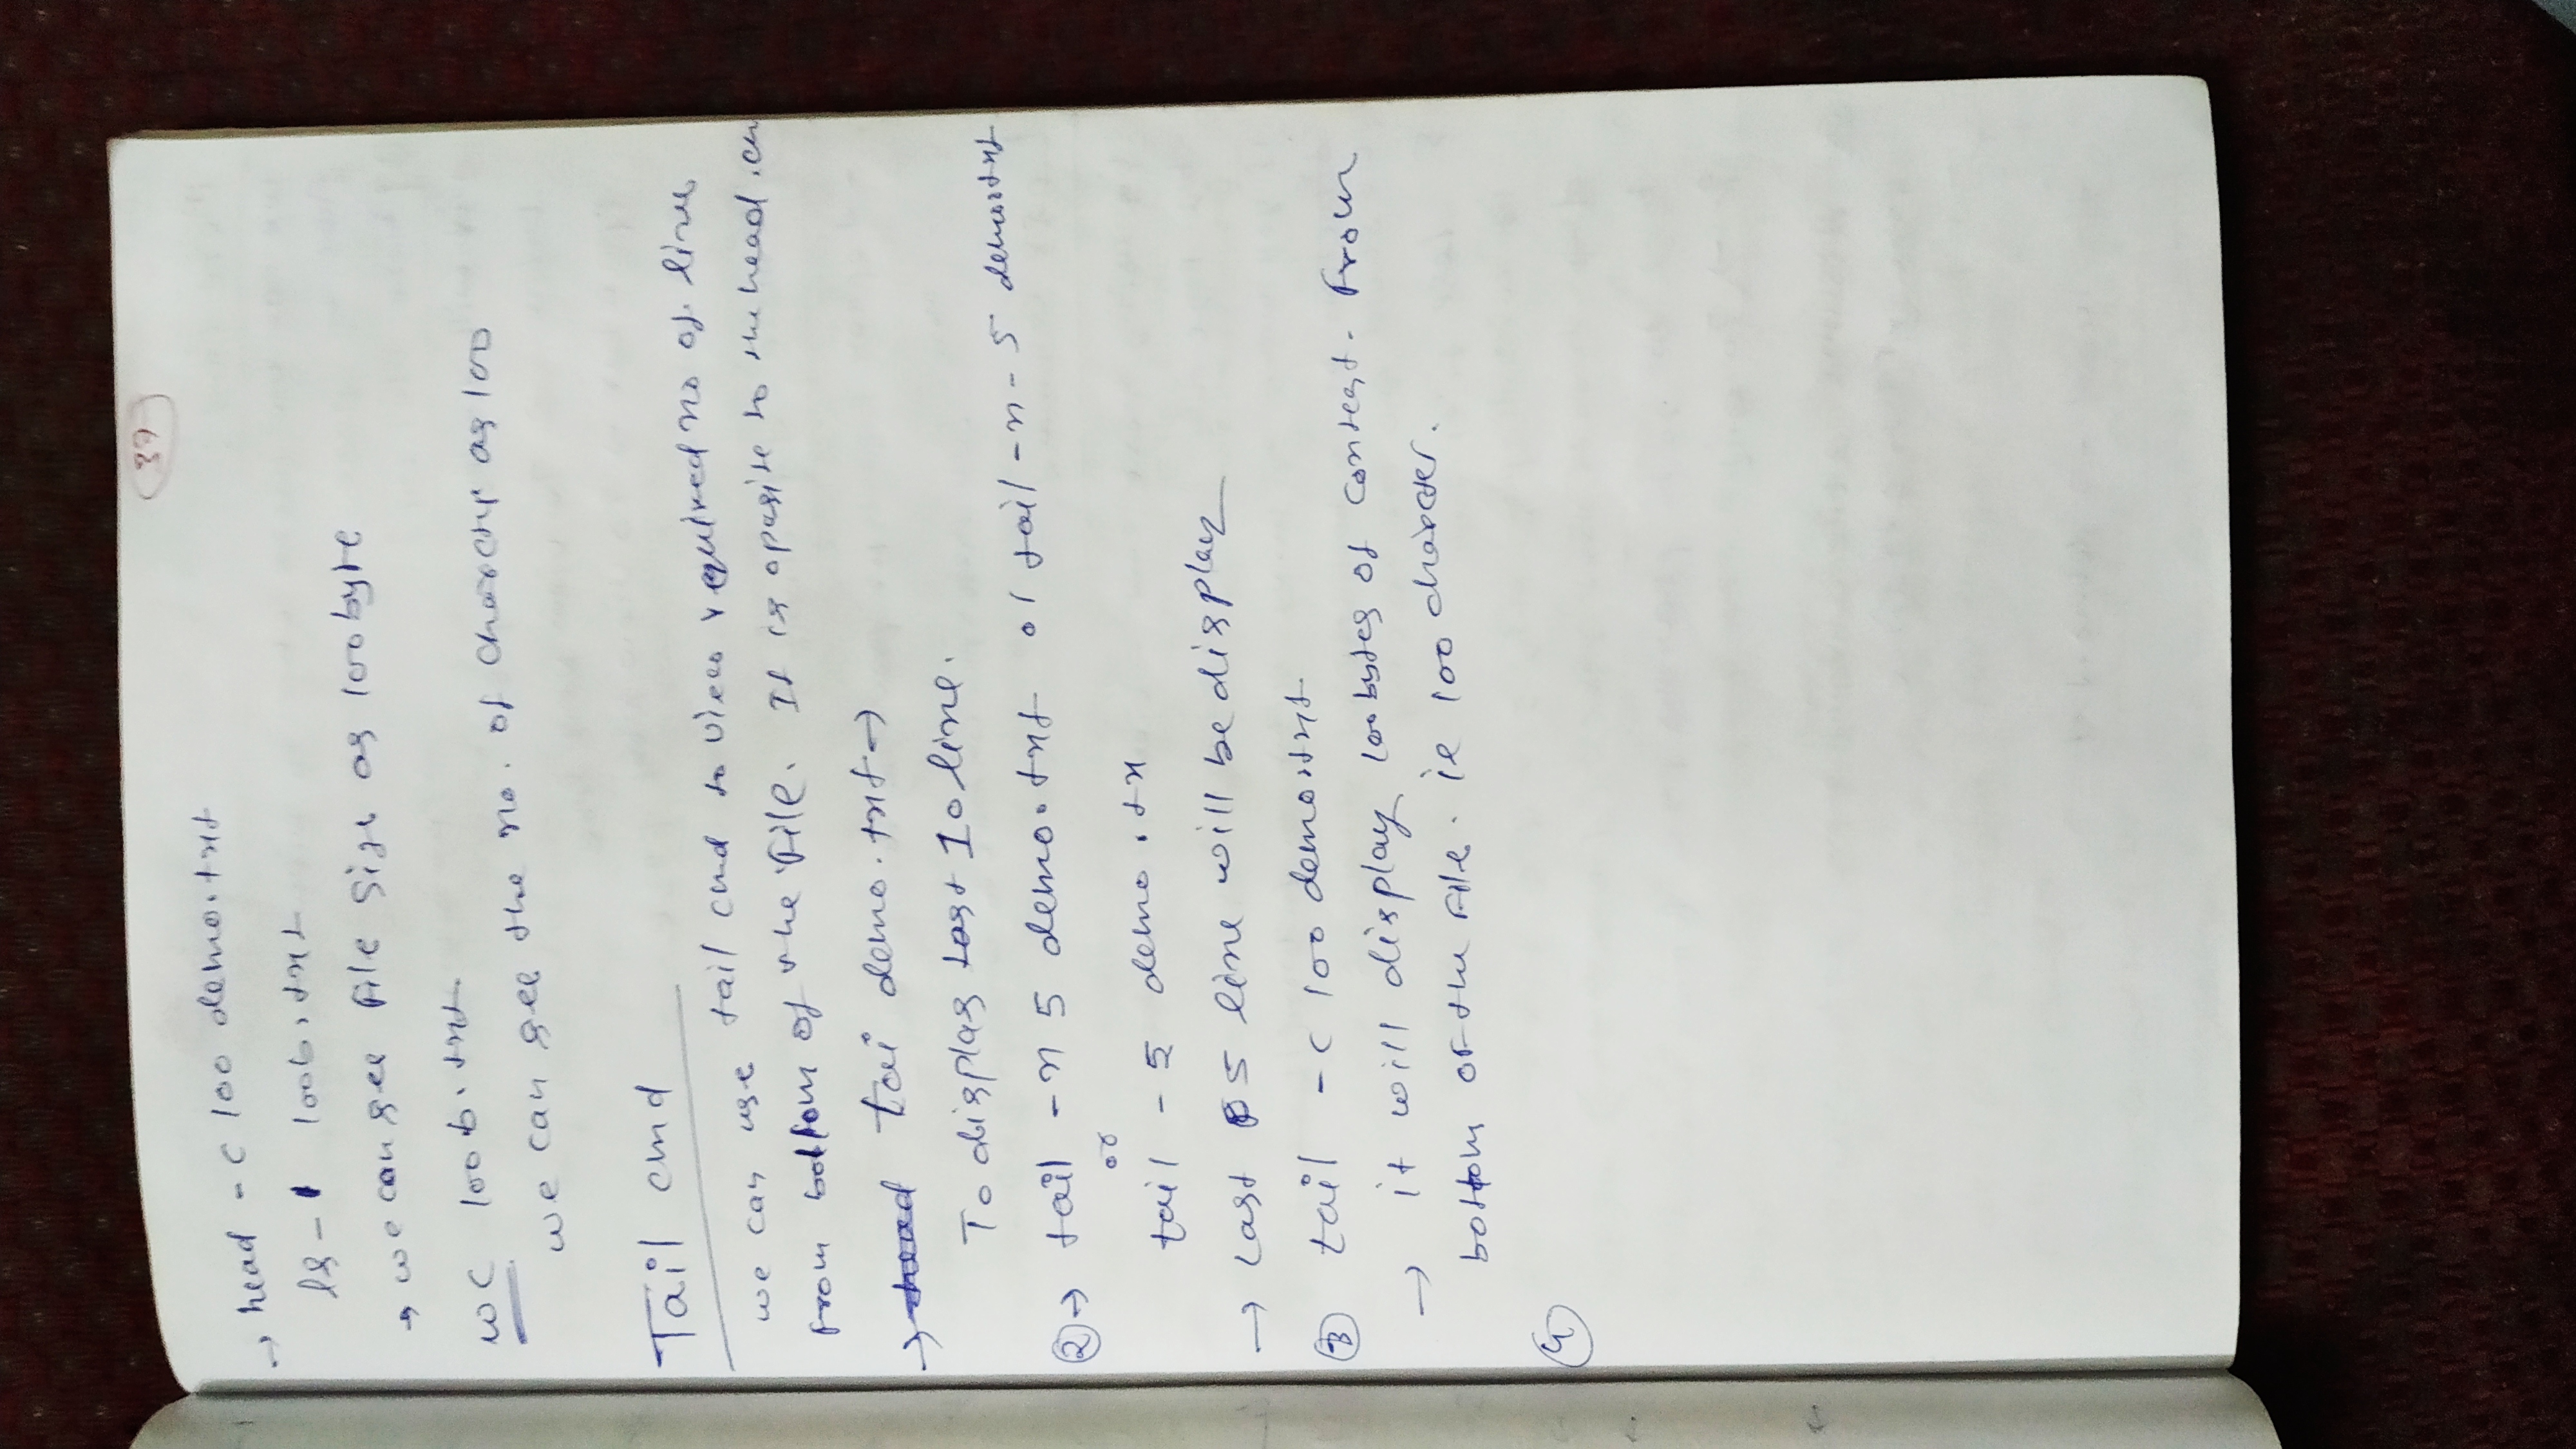 37
→ head -c 100 demo.txt
ls -l 100b.txt
→ we can see file size as 100byte
wc 100b.txt
we can see the no. of charcter as 100
Tail cmd
we can use tail cmd to view required no of lines
from bottom of the file. It is oposite to the head.cm
→ head tai demo.txt →
To display last 10 line.
② → tail -n 5 demo.txt or tail -n -5 demo.txt
or
tail -5 demo.tx
→ Last 5 line will be display
③ tail -c 100 demo.txt
→ it will display 100bytes of content. From
bottom of the file. ie 100 charcter.
④